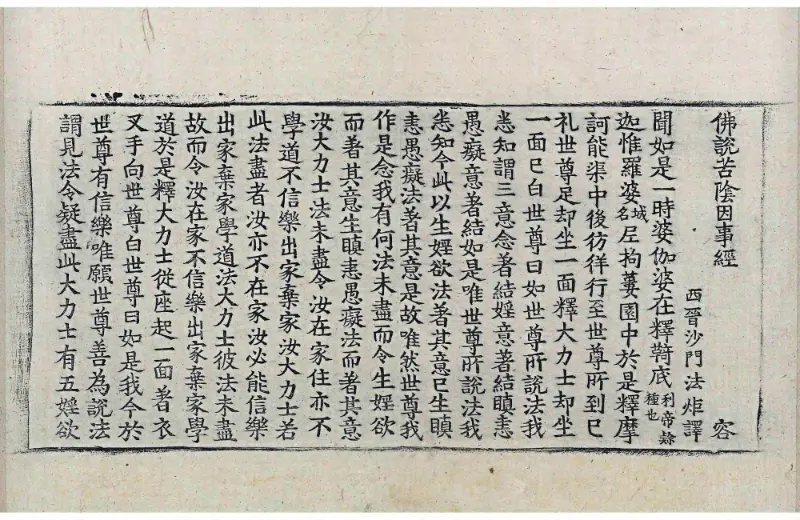 佛說苦陰因事經　容
西晉沙門法炬譯
聞如是一時婆伽婆在釋底利帝隸種也
迦惟羅婆城名尼拘蔞園中於是釋摩
訶能渠中後彷徉行至世尊所到已
礼世尊足却坐一面釋大力士却坐
一面已白世尊曰如世尊所說法我
悉知謂三意念著結婬意著結瞋恚
愚癡意著結如是唯世尊所說法我
悉知今此以生婬欲法著其意已生瞋
恚愚癡法著其意是故唯然世尊我
作是念我有何法未盡而令生婬欲
而著其意生瞋恚愚癡法而著其意
汝大力士法未盡令汝在家住亦不
學道不信樂出家棄家汝大力士若
此法盡者汝亦不在家汝必能信樂
出家棄家學道法大力士彼法未盡
故而令汝在家不信樂出家棄家學
道於是釋大力士從座起一面著衣
叉手向世尊白世尊曰如是我今於
世尊有信樂唯願世尊善為說法
謂見法令疑盡此大力士有五婬欲